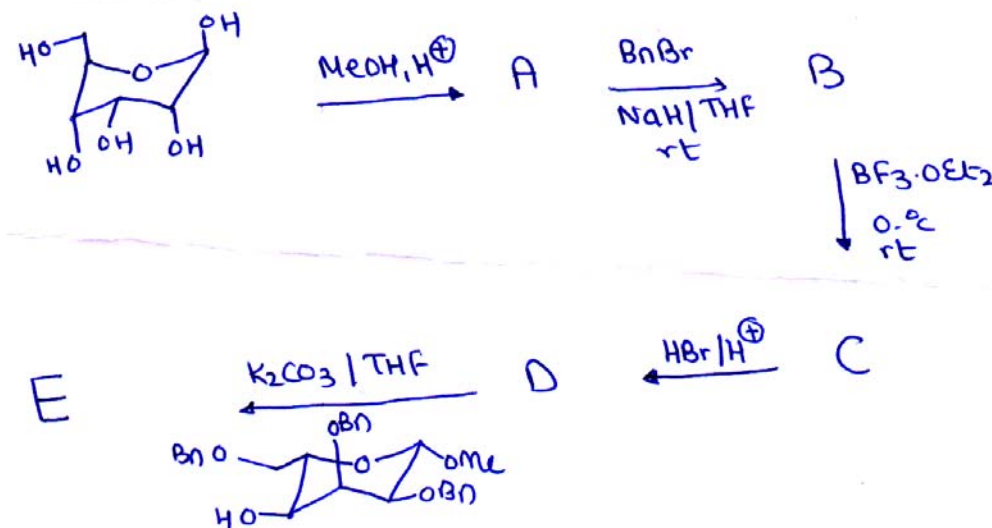 OH
HO
O
HO
OH
OH
MeOH, H⊕
A
BnBr
NaH/THF
rt
B
BF3·OEt2
0-°c
rt
C
HBr/H⊕
D
K2CO3/THF
E
OBn
BnO
O
OMe
OBn
HO